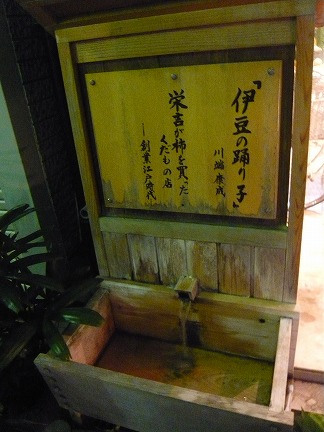 「伊豆の踊り子」
川端康成
栄吉が柿を買った
くだもの店
―創業江戸時代